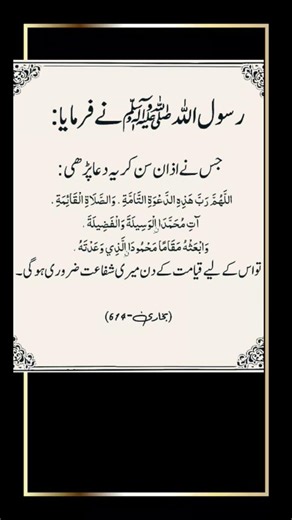 رسول اللہ ﷺ نے فرمایا:
جس نے اذان سن کر یہ دعا پڑھی:
اللَّهُمَّ رَبَّ هَذِهِ الدَّعْوَةِ التَّامَّةِ . وَالصَّلَاةِ الْقَائِمَةِ .
آتِ مُحَمَّدًا الْوَسِيلَةَ وَالْفَضِيلَةَ .
وَابْعَثْهُ مَقَامًا مَحْمُودًا الَّذِي وَعَدْتَهُ .
تو اس کے لیے قیامت کے دن میری شفاعت ضروری ہوگی۔
(بخاری-614)